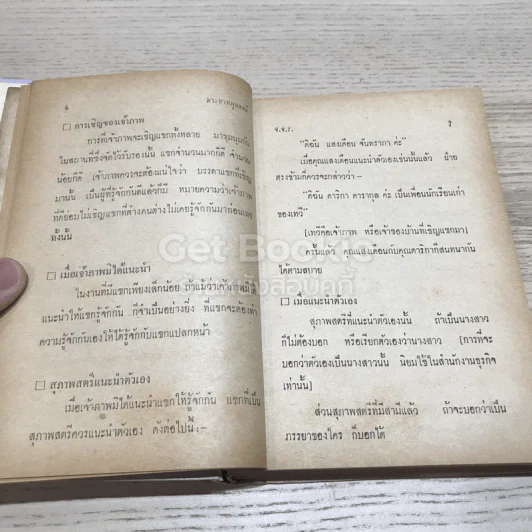 ๖
มารยาทกุลสตรี
□ การเชิญของเจ้าภาพ
การที่เจ้าภาพจะเชิญแขกทั้งหลาย มาชุมนุมกัน
ในสถานที่ซึ่งจัดไว้รับรองนั้น แขกจำนวนมากก็ดี จำนวน
น้อยก็ดี เจ้าภาพควรจะต้องแน่ใจว่า บรรดาแขกที่เชิญ
มานั้น เป็นผู้ที่รู้จักกันดีแล้วก็มี หมายความว่าเจ้าภาพ
ที่ดีย่อมไม่เชิญแขกที่ต่างคนต่างไม่เคยรู้จักกันมาก่อน
ทั้งนั้น
□ เมื่อเจ้าภาพมิได้แนะนำ
ในงานที่มีแขกเพียงเล็กน้อย ถ้าแม้ว่าเจ้าภาพมิได้
แนะนำให้แขกรู้จักกัน ก็จำเป็นอย่างยิ่ง ที่แขกจะต้อง
ความรู้จักกันเองให้ได้รู้จักกับแขกแปลกหน้า
□ สุภาพสตรีแนะนำตัวเอง
เมื่อเจ้าภาพมิได้แนะนำแขกให้รู้จักกัน แขกที่เป็น
สุภาพสตรีควรแนะนำตัวเอง ดังต่อไปนี้:–
จ.จ.ร.
๗
"ดิฉัน แสงเดือน จันทราภา ค่ะ"
เมื่อคุณแสงเดือนแนะนำตัวเองเช่นนั้นแล้ว ฝ่าย
ตรงข้ามก็ควรจะกล่าวว่า–
"ดิฉัน ดาริกา ดารากุล ค่ะ เป็นเพื่อนนักเรียนเก่า
ของเทวี"
[เทวีคือเจ้าภาพ หรือเจ้าของบ้านที่เชิญแขกมา]
ครั้นแล้ว คุณแสงเดือนกับคุณดาริกาก็สนทนากัน
ได้ตามสบาย
□ เมื่อแนะนำตัวเอง
สุภาพสตรีที่แนะนำตัวเองนั้น ถ้าเป็นนางสาว
ก็ไม่ต้องบอก หรือเรียกตัวเองว่านางสาว [การที่จะ
บอกว่าตัวเองเป็นนางสาวนั้น นิยมใช้ในสำนักงานธุรกิจ
เท่านั้น]
ส่วนสุภาพสตรีที่มีสามีแล้ว ถ้าจะบอกว่าเป็น
ภรรยาของใคร ก็บอกได้
Get Bookie